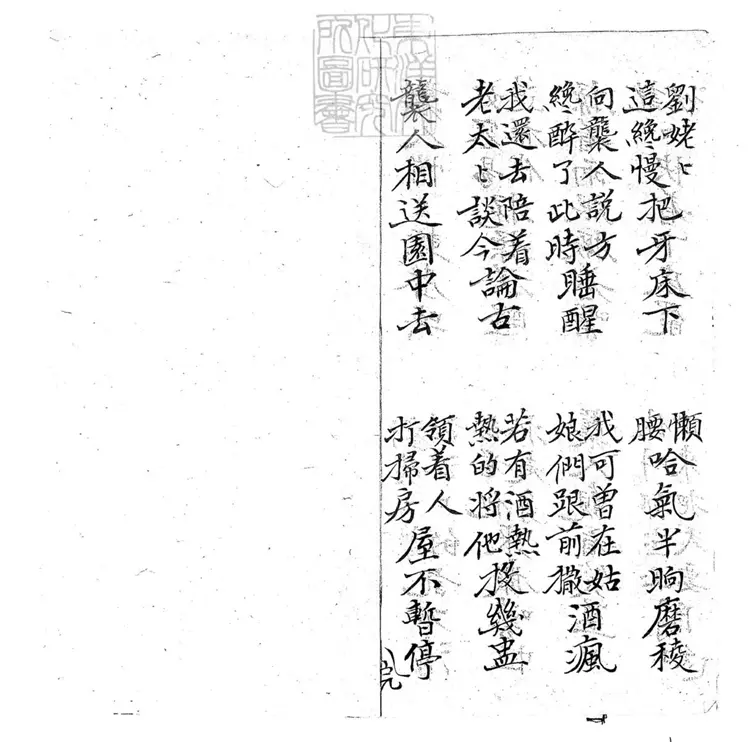 劉姥〻這纔慢把牙床下
懶腰哈氣半晌磨稜
向襲人說方纔醉了此時睡醒
我可曾在姑娘們跟前撒酒瘋
我還去陪着老太〻談今論古
若有酒熱熱的將他投幾盅
襲人相送園中去
領着人打掃房屋不暫停
完